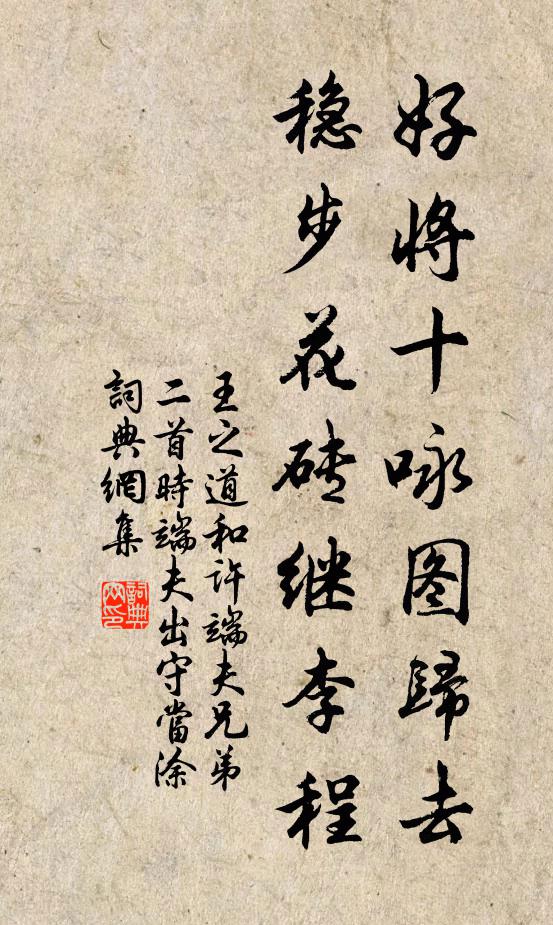 好将十咏图歸去
稳步花砖继李程
王之道和许端夫兄弟
二首時端夫出守當涂
詞典網集
詞典网印